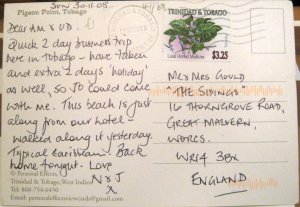 Pigeon Point, Tobago
Sun 30.11.08
Dear Am & UD.
Quick 2 day business trip
here in Tobago - have taken
and extra 2 days 'holiday'
as well, so JO could come
with me. This beach is just
along from our hotel -
walked along it yesterday.
Typical Caribbean. Back
home tonight. Love
N & J
X
© Personal Effects,
Trinidad & Tobago, West Indies
Tel: 868-754-6450
personaleffectsviewcards@gmail.com
TRINIDAD & TOBAGO
$3.25
Local Herbal Medicine
Mr & Mrs Gould
"The Sidings"
16 Thorngrove Road,
Great Malvern,
Worcs.
WR14 3BX
ENGLAND